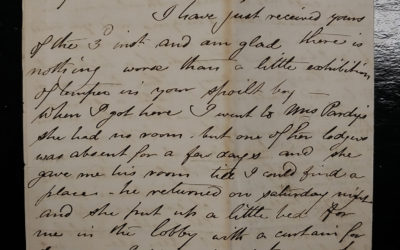 I have just received yours
of the 3d inst and am glad there is
nothing worse than a little exhibition
of temper in your spoilt boy —
When I got here I went to Mrs Pardys
she had no room - but one of her lodgers
was absent for a few days and she
gave me his room till I could find a
place - he returned on saturday night
and she put up a little bed for
me in the lobby with a curtain for